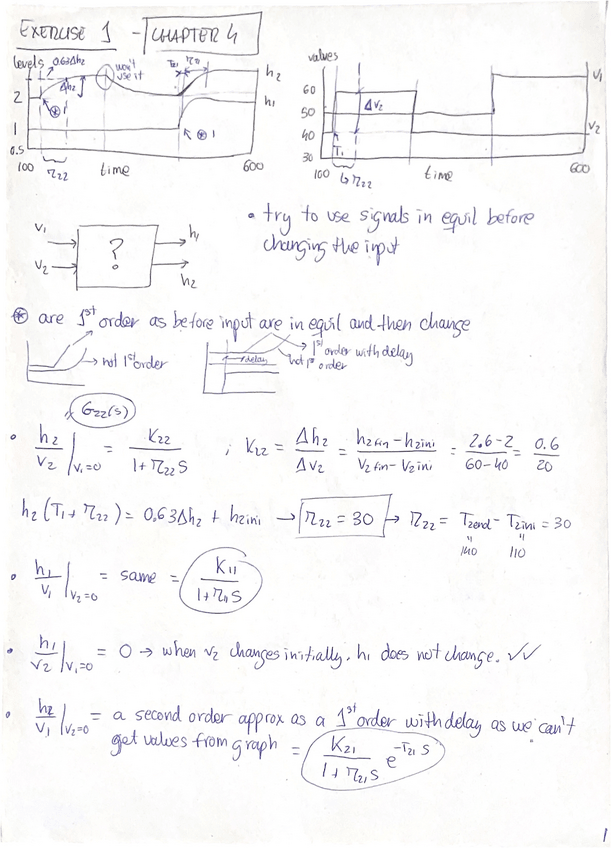 EXERCISE 1 - CHAPTER 4
levels 0,63Δh₂ won't use it τ₂₁ h₂
Δh₂
2 h₁
⊛ 1
1 ⊛ 1
0.5
100 τ₂₂ time 600
values
60 V₁
ΔV₂
50
40 V₂
30 T₁
100 τ₂₂ time 600
V₁ h₁
?
V₂ h₂
• try to use signals in equil before
changing the input
⊛ are 1st order as before input are in equil and then change
not 1st order
delay 1st order with delay
not 1st order
G₂₂(s)
• h₂/V₂ |V₁=0 = K₂₂/(1+τ₂₂s) ; K₂₂ = Δh₂/ΔV₂ = (h₂fin - h₂ini)/(V₂fin - V₂ini) = (2.6-2)/(60-40) = 0.6/20
h₂(T₁+τ₂₂) = 0,63Δh₂ + h₂ini → τ₂₂ = 30 → τ₂₂ = T₂end - T₂ini = 30
140 110
• h₁/V₁ |V₂=0 = same = K₁₁/(1+τ₁₁s)
• h₁/V₂ |V₁=0 = 0 → when V₂ changes initially, h₁ does not change. ✓✓
• h₂/V₁ |V₂=0 = a second order approx as a 1st order with delay as we can't
get values from graph = K₂₁/(1+τ₂₁s) e^(-T₂₁s)
1